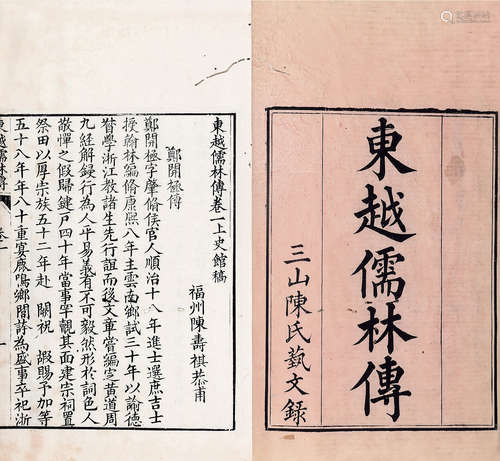 東越儒林傳
三山陳氏藝文錄
東越儒林傳卷一上史館稿
福州陳壽祺恭甫
鄭開極傳
鄭開極字肇脩侯官人順治十八年進士選庶吉士
授翰林編脩康熙八年主雲南鄉試三十年以諭德
督學浙江教諸生先行誼而後文章嘗編字黃道周
九經解錢行為人平易義有不可毅然形於詞色人
敬憚之假歸鍵戶四十年當事罕覿其面建宗祠置
祭田以厚宗族五十二年赴闕祝嘏賜予加等
五十八年年八十重宴鹿鳴鄉閭詩為盛事卒祀浙
東越儒林傳
卷一
一